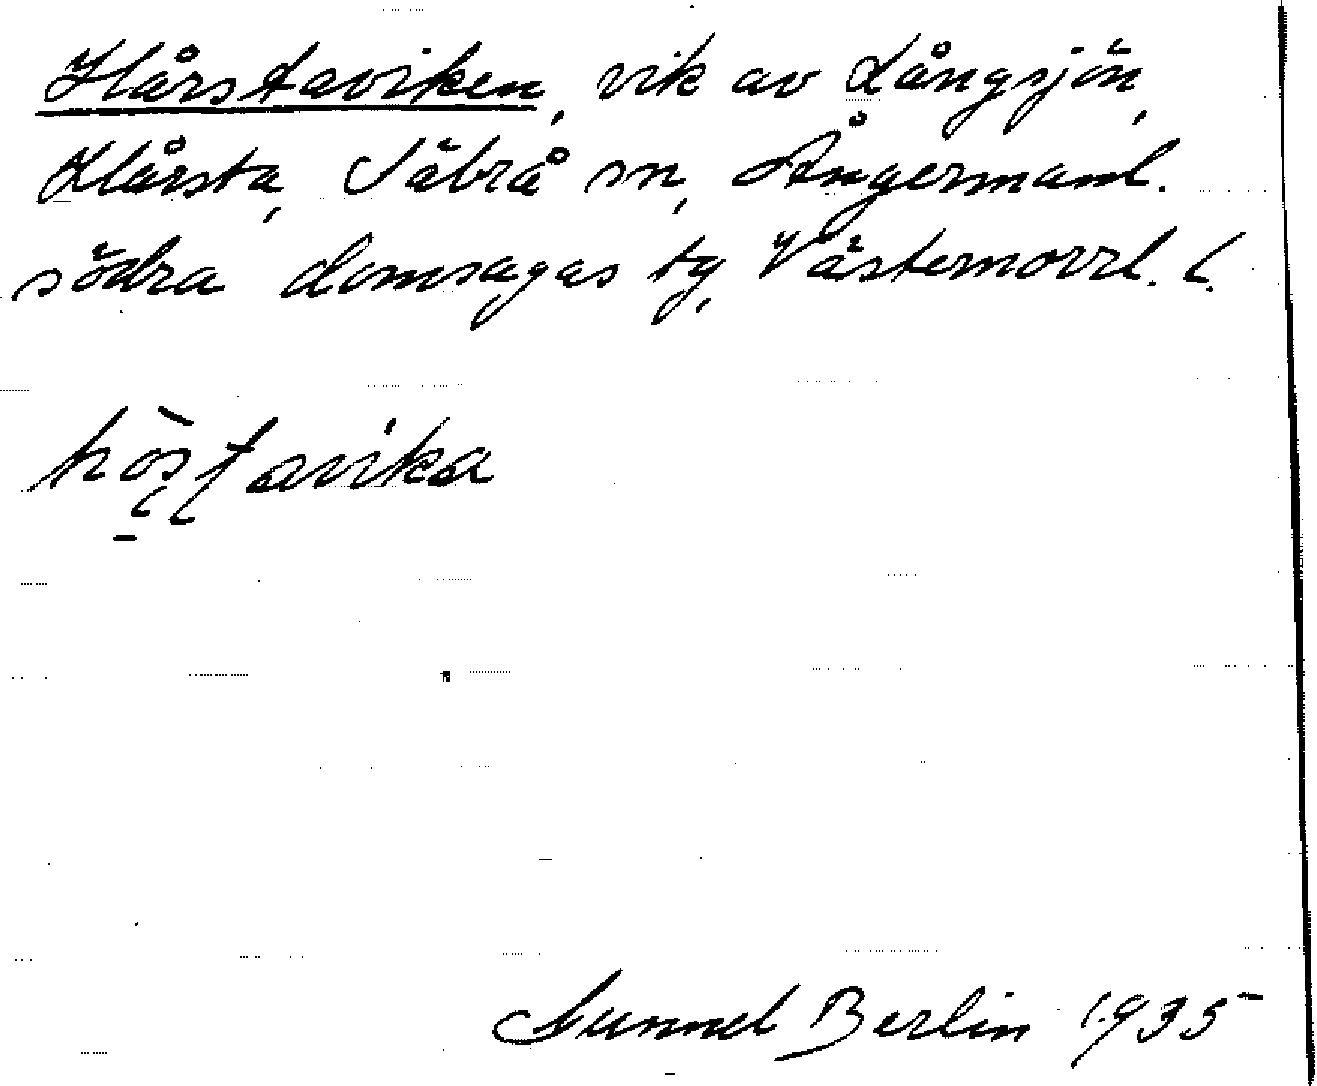 Hårstaviken, vik av Långsjön,
Hårsta, Säbrå sn, Ångermanl.
södra domsagas tg, Västernorrl. l.
hös̨t̨avika
Gunnel Berlin 1935